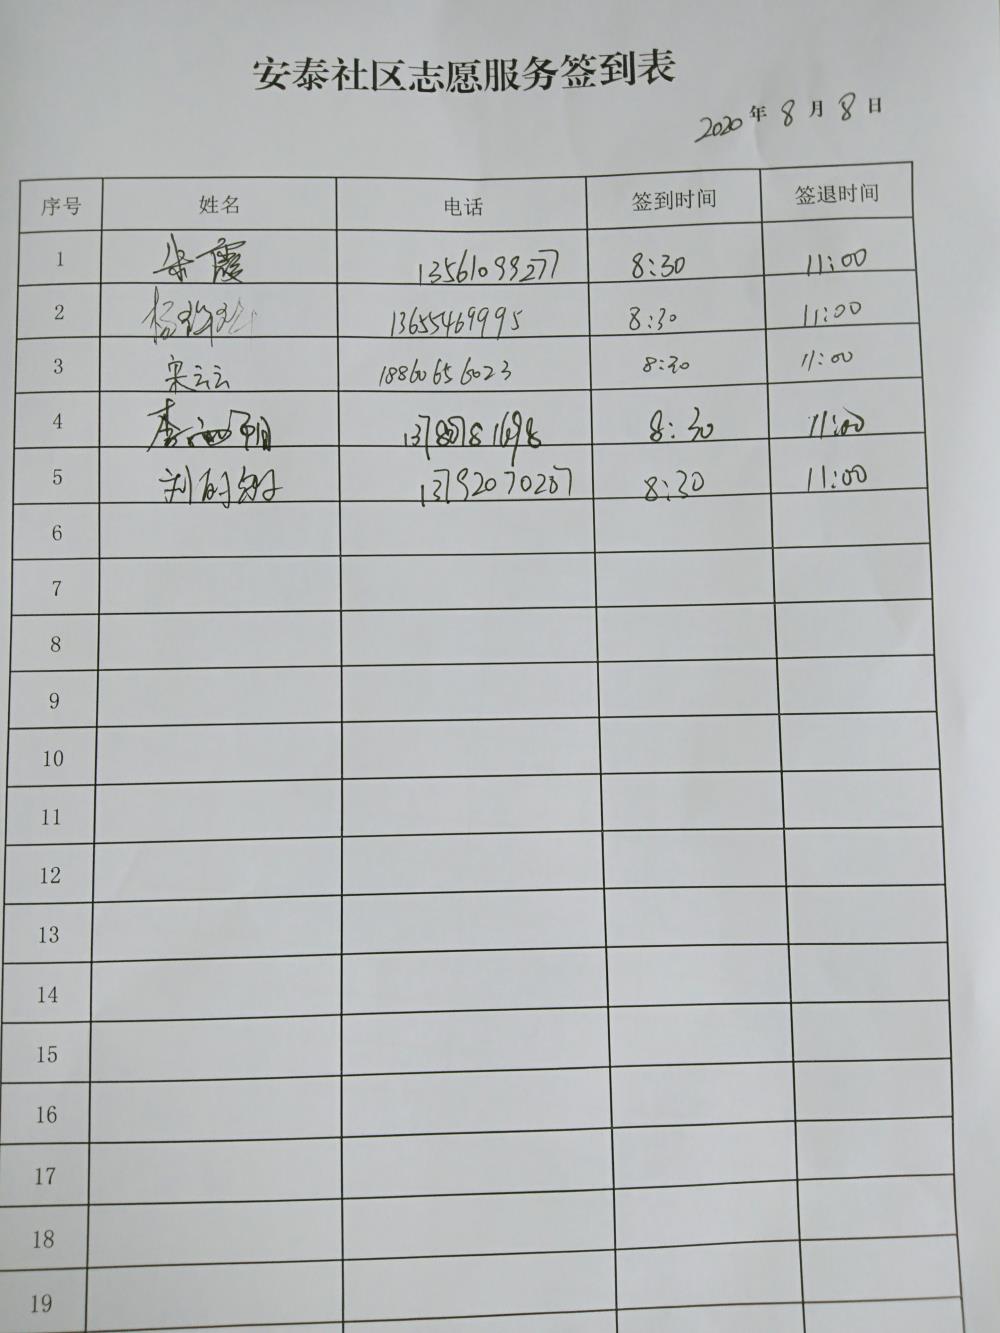 安泰社区志愿服务签到表
2020年8月8日
序号 姓名 电话 签到时间 签退时间
1 朱霞 13561099277 8:30 11:00
2 13655469995 8:30 11:00
3 宋云云 18860656023 8:30 11:00
4 8:30 11:00
5 13792070287 8:30 11:00
6
7
8
9
10
11
12
13
14
15
16
17
18
19